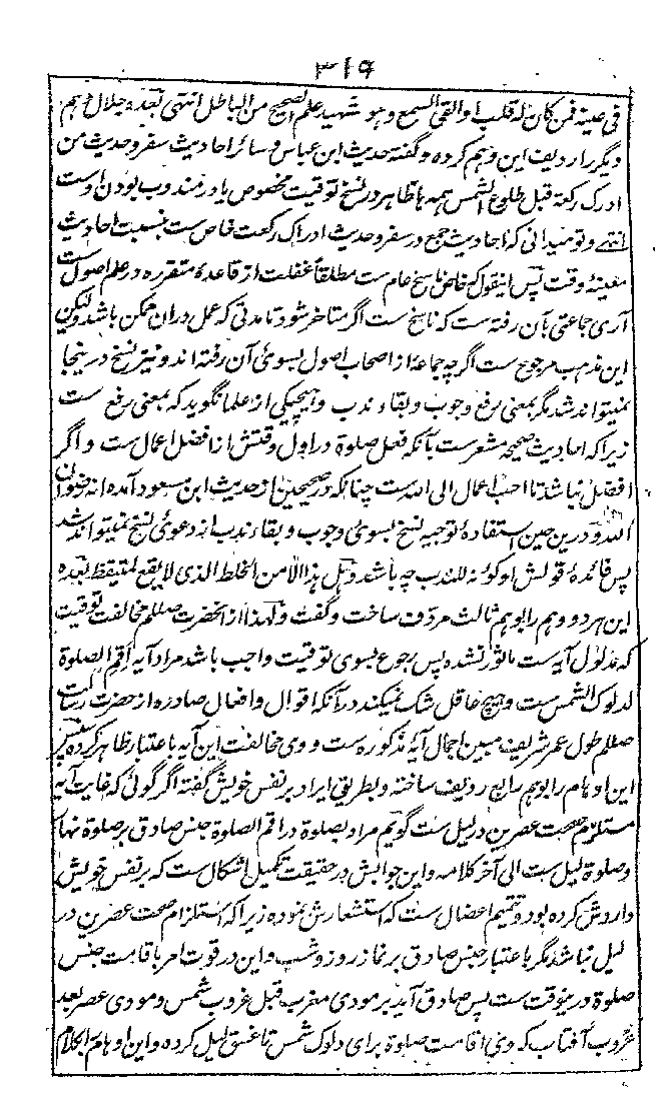 ۳۱۹
فی عینه فمن کان له قلب او القی السمع و هو شهید علم الصحیح من الباطل انتهی بعده جلال وهم
دیگر را ردیف این وهم کرده و گفته حدیث ابن عباس و سائر احادیث سفر و حدیث من
ادرک رکعة قبل طلوع الشمس همه ها ظاهر در نسخ توقیت مخصوص یا در مندوب بودن اوست
انتهی و تو میدانی که احادیث جمع در سفر و حدیث ادراک رکعت خاص ست بنسبت احادیث
معینهٔ وقت پس اینقول که خاص ناسخ عام ست مطلقاً غفلت از قاعدهٔ متقرره در علم اصول ست
آری جماعتی بآن رفته ست که ناسخ ست اگر متاخر شود تا مدتی که عمل دران ممکن باشد ولیکن
این مذهب مرجوح ست اگرچه جماعهٔ از اصحاب اصول بسوی آن رفته اند و نیز نسخ درینجا
نمیتواند شد مگر بمعنی رفع وجوب و بقاء ندب و هیچیکی از علما نگوید که بمعنی رفع ست
زیرا که احادیث صحیحه مشعرست بآنکه فعل صلوة در اول وقتش از افضل اعمال ست و اگر
افضل نباشد تا احب اعمال الی الله ست چنانکه در صحیحین از حدیث ابن مسعود آمده انه رضوان
الله و درین حین استفادهٔ توجیه نسخ بسوی وجوب و بقاء ندب از دعوئ نسخ نمیتواند شد
پس فائدهٔ قولش او کونه للندب چه باشد و هل هذا الا من الخلط الذی لا یقع لمتیقظ بعده
این هر دو وهم را بوهم ثالث مردف ساخت و گفت و لهذا از آنحضرت صللم مخالفت توقیت
که مدلول آیه ست ماثور نشده پس رجوع بسوی توقیت واجب باشد مراد آیه اقم الصلوة
لدلوک الشمس ست و هیچ عاقل شک نمیکند در آنکه اقوال و افعال صادره از حضرت رسالت
صللم طول عمر شریف مبین اجمال آیهٔ مذکوره ست و وی مخالفت این آیه باعتبار ظاهر کرده پستر
این اوهام را بوهم رابع ردیف ساخته و بطریق ایراد بر نفس خویش گفته اگر گوئی که غایت آیه
مستلزم صحت عصرین در لیل ست گویم مراد بصلوة در اقم الصلوة جنس صادق بر صلوة نهار
و صلوة لیل ست الی آخر کلامه و این جوابش در حقیقت تکمیل اشکال ست که بر نفس خویش
واردش کرده بود و تتمیم اعضال ست که استشعارش نموده زیرا که استلزام صحت عصرین در
لیل نباشد مگر باعتبار جنس صادق بر نماز روز و شب و این در قوت امر باقامت جنس
صلوة درینوقت ست پس صادق آید بر مودی مغرب قبل غروب شمس و مودی عصر بعد
غروب آفتاب که وی اقامت صلوة برای دلوک شمس تا غسق لیل کرده و این اوهام الکلام